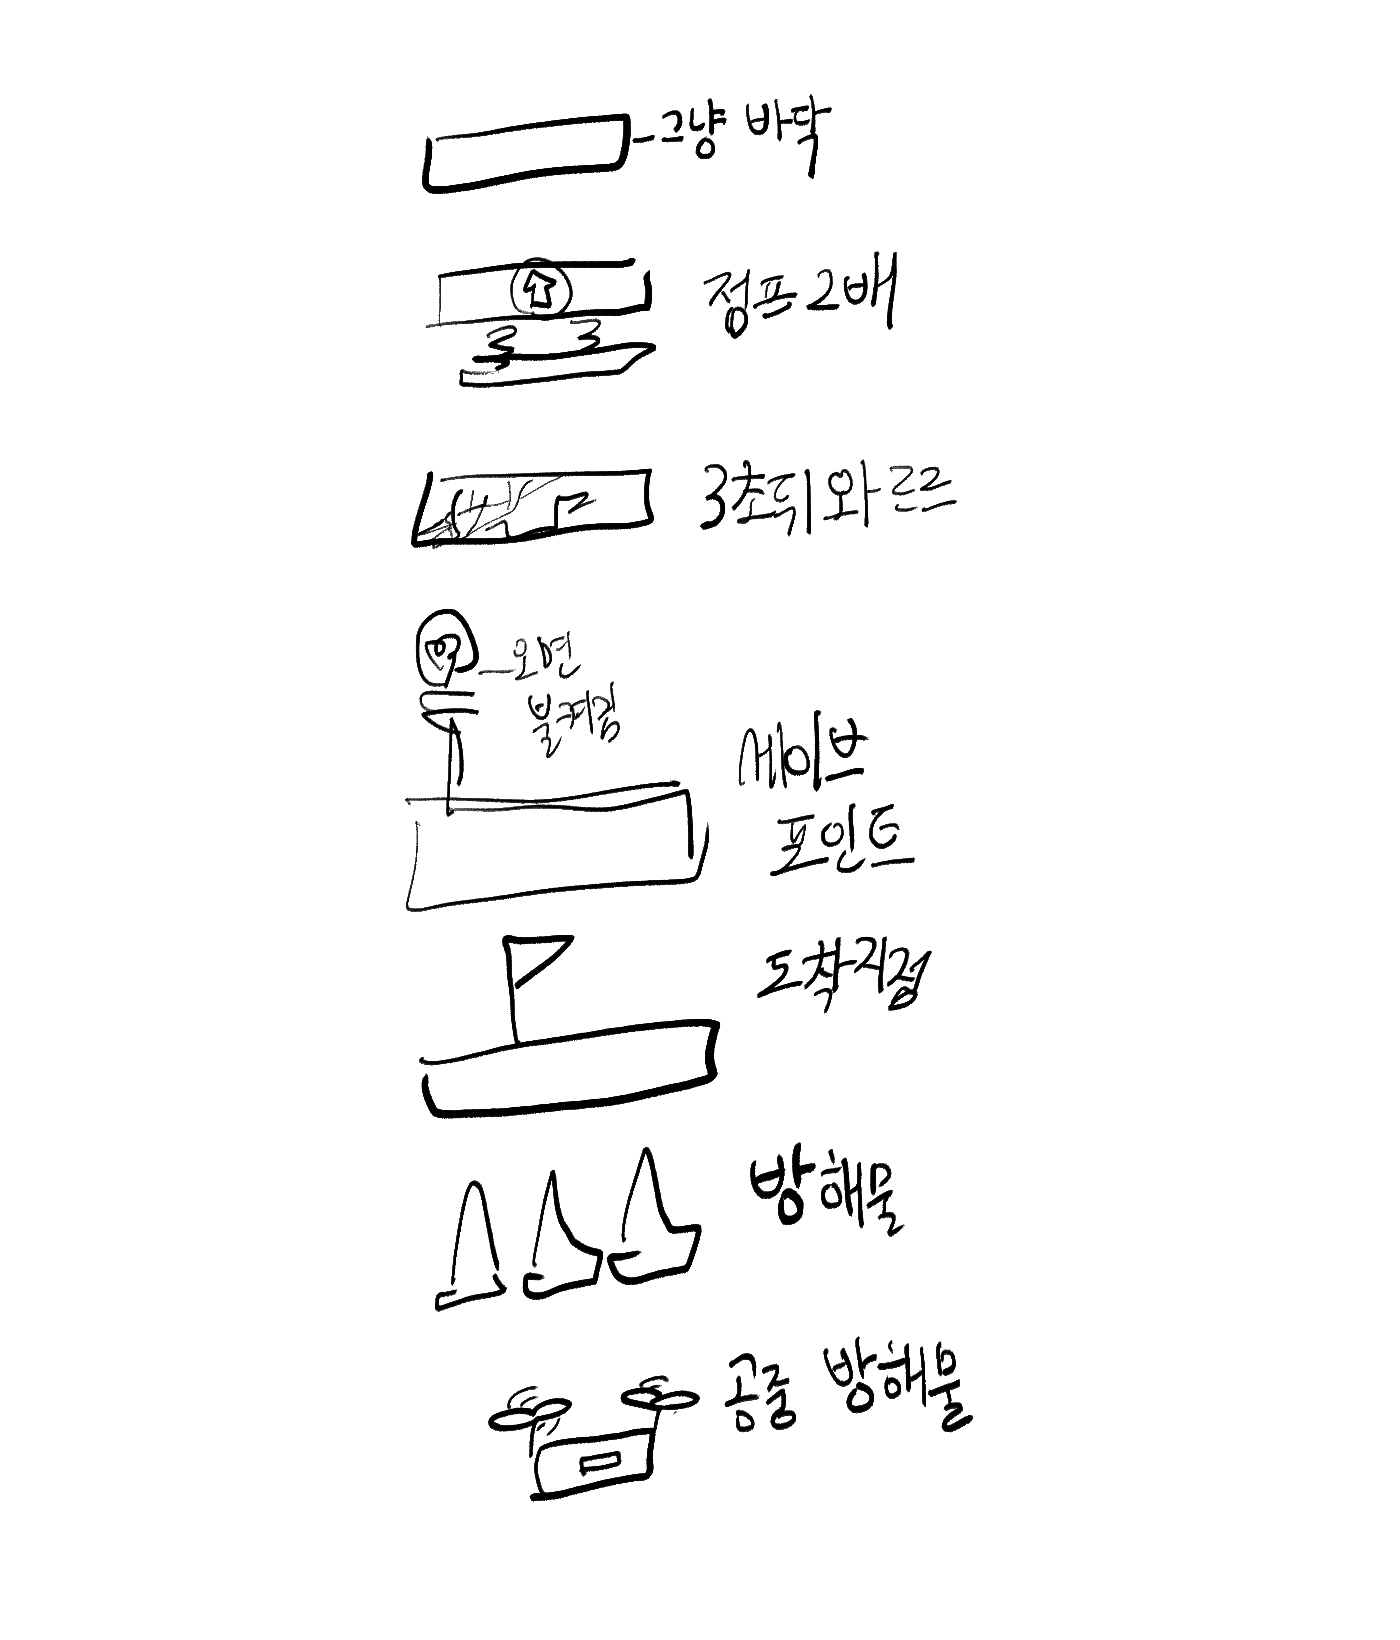 그냥 바닥
점프 2배
3초뒤 와르르
오면
불켜짐
세이브
포인트
도착지점
방해물
공중 방해물